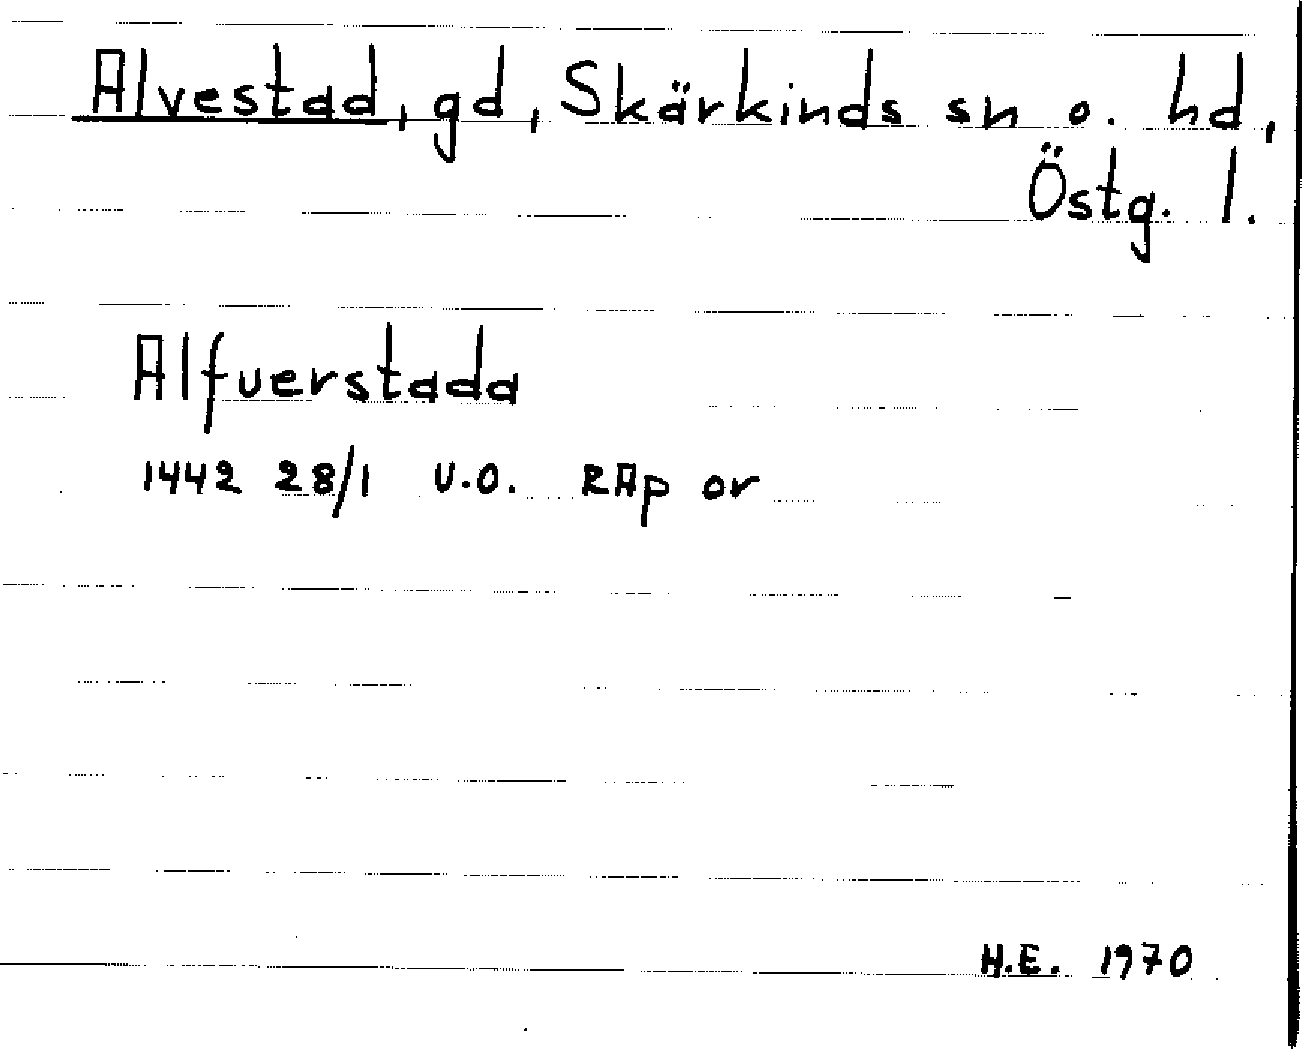 Alvestad, gd, Skärkinds sn o. hd,
Östg. l.
Alfuerstada
1442 28/1 u.o. RAp or
H.E. 1970